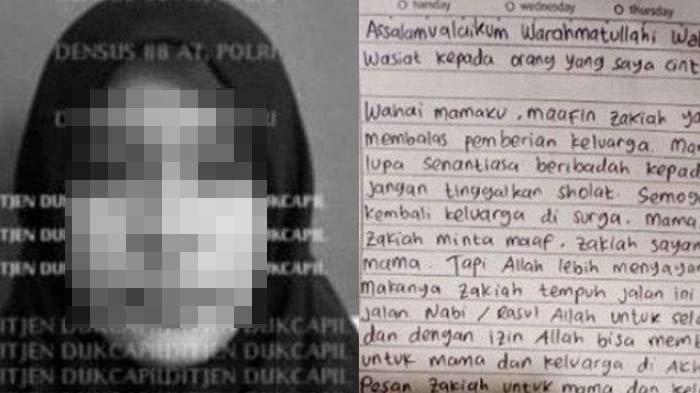 DENSUS 88 AT. POLRI
D
RI
TJEN DUKCAPIL
TJEN DU DUKCAPIL
TJEN DU DUKCAPIL
DITJEN DU DUKCAPIL
DITJEN DUKCAPIL DITJEN DUKCAPIL
tuesday wednesday thursday
Assalamualaikum Warahmatullahi Wa
Wasiat kepada orang yang saya cint
Wahai mamaku, maafin zakiah ya
membalas pemberian keluarga. Ma
lupa senantiasa beribadah kepad
jangan tinggalkan sholat. Semog
kembali keluarga di surga. mama
Zakiah minta maaf. zakiah sayan
mama. Tapi Allah lebih menyaya
makanya zakiah tempuh jalan ini
jalan Nabi / Rasul Allah untuk sel
dan dengan izin Allah bisa mem
untuk mama dan keluarga di Akh
Pesan zakiah untuk mama dan kel